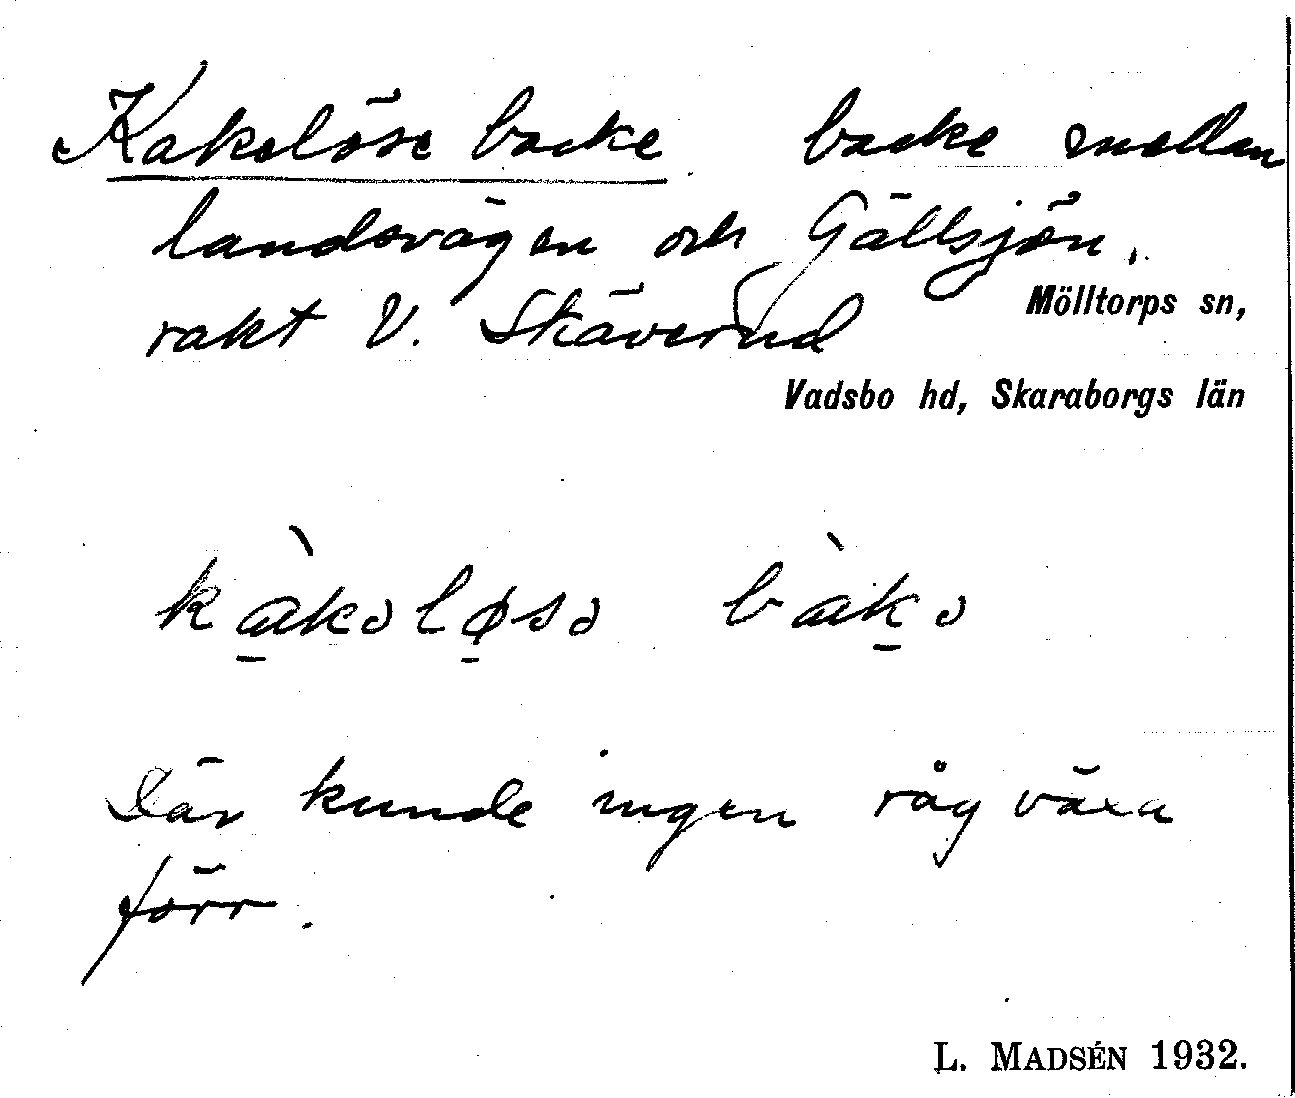 Kakelöse backe backe mellan
landsvägen och Gällsjön,
rakt V. Skäverud
Mölltorps sn,
Vadsbo hd, Skaraborgs län
kàkəløsə bàkə
Där kunde ingen råg växa
förr.
L. MADSÉN 1932.